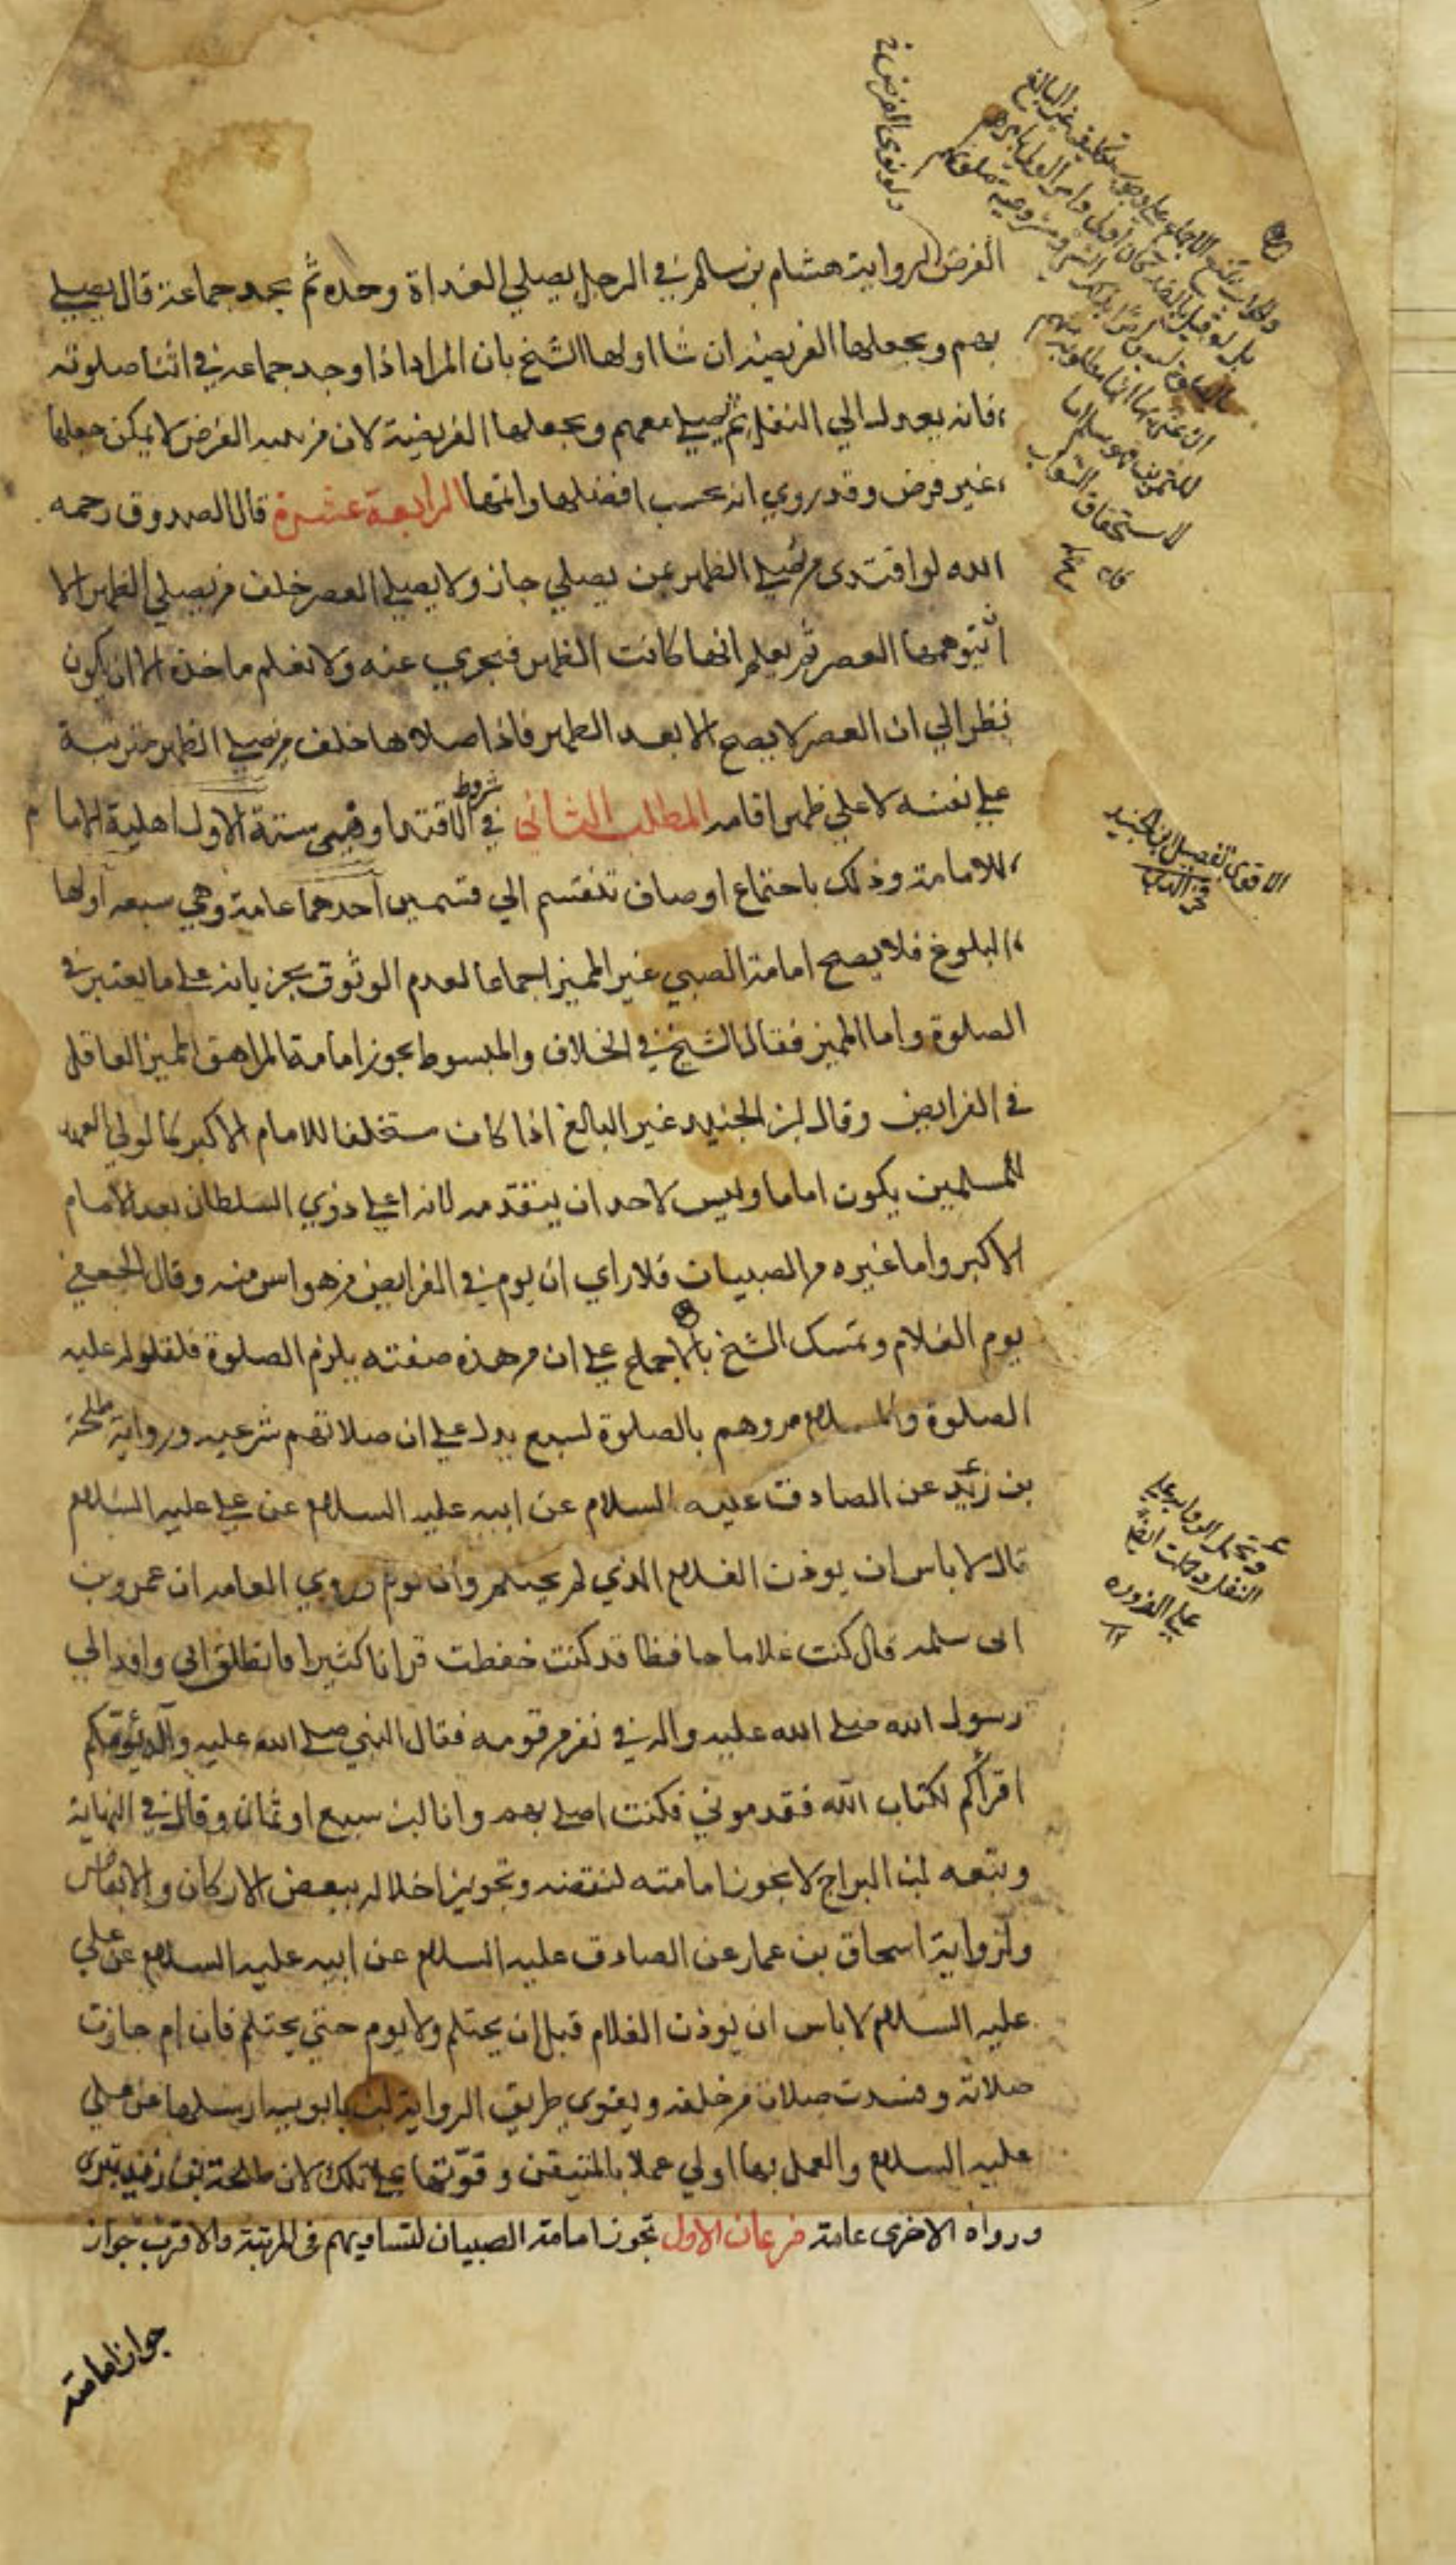 ولو نوى الفرض
الفرض لرواية هشام بن سالم في الرجل يصلي الغداة وحده ثم يجد جماعة قال يصلي
بهم ويجعلها الفريضة ان شا اولها الشيخ بان المراد اذا وجد جماعه في اثنا صلوته
فانه يعدل الي النفل ثم يصلي معهم ويجعلها الفريضة لان من صلي الفرض لا يمكن جعلها
غير فرض وقد روي انه يحسب افضلها واتمها الرابعة عشرة قال الصدوق رحمه
الله لو اقتدى من يصلي الظهر بمن يصلي جاز ولا يصلي العصر خلف من يصلي الظهر الا
ان يتوهمها العصر ثم يعلم انها كانت الظهر فيجزي عنه ولا نعلم ماخذه الا ان يكون
نظر الي ان العصر لا يصح الا بعد الظهر فاذا صلاها خلف من يصلي الظهر
علي نفسه لا علي ظهر امامه المطلب الثاني في شروط الاقتدا وهي ستة الاول اهلية الاما م
للامامة وذلك باجتماع اوصاف تنقسم الي قسمين احدهما عامة وهي سبعه اولها
البلوغ فلا يصح امامة الصبي غير المميز اجماعا لعدم الوثوق بجريانه على ما يعتبر في
الصلوة واما المميز فقال الشيخ في الخلاف والمبسوط يجوز امامة المراهق المميز العاقل
في الفرايض وقال ابن الجنيد غير البالغ اذا كان مستخلفا للامام الاكبر كالولي العهد
للمسلمين يكون اماما وليس لاحد ان يتقدمه لانه اعلي ذوي السلطان بعد الامام
الاكبر واما غيره من الصبيان فلا اري ان يوم في الفرايض من هو اسن منه وقال الجعفي
يوم الغلام وتمسك الشيخ بالاجماع علي ان من هذه صفته يلزم الصلوة فلقوله عليه
الصلوة والسلام مروهم بالصلوة لسبع يدل علي ان صلاتهم شرعيه ورواية طلحة
بن زيد عن الصادق عليه السلام عن ابيه عليه السلام عن علي عليه السلام
قال لا باس ان يوذن الغلام الذي لم يحتلم وان يوم وروي العامه ان عمرو بن
ابى سلمه قال كنت غلاما حافظا قد كنت حفظت قرانا كثيرا فانطلق ابى وافدا الي
رسول الله صلى الله عليه واله في نفر من قومه فقال النبي صلى الله عليه وآله يؤمكم
اقرأكم لكتاب الله فقدموني فكنت اصلي بهم وانا ابن سبع او ثمان وقال في النهاية
وتبعه ابن البراج لا يجوز امامته لنقصه وتجويز اخلاله ببعض الاركان والابعاض
ولرواية اسحاق بن عمار عن الصادق عليه السلام عن ابيه عليه السلام عن علي
عليه السلام لا باس ان يوذن الغلام قبل ان يحتلم ولا يوم حتي يحتلم فان ام جازت
صلاته وفسدت صلاة من خلفه ويقوي طريق الرواية ابن بابويه ارسلها عن علي
عليه السلام والعمل بها اولي عملا بالمتيقن وقوتها علي تلك لان طلحة بن زيد بتري
ورواه الاخرى عامة فرعان الاول تجوز امامة الصبيان لتساويهم في المرتبة والاقرب جواز
جواز امامته
الاقوى تفصيل ابن الجنيد
فخر الدين
وتحمل الرواية علي
النفل
علي الضرورة
لاستحقاق الثواب